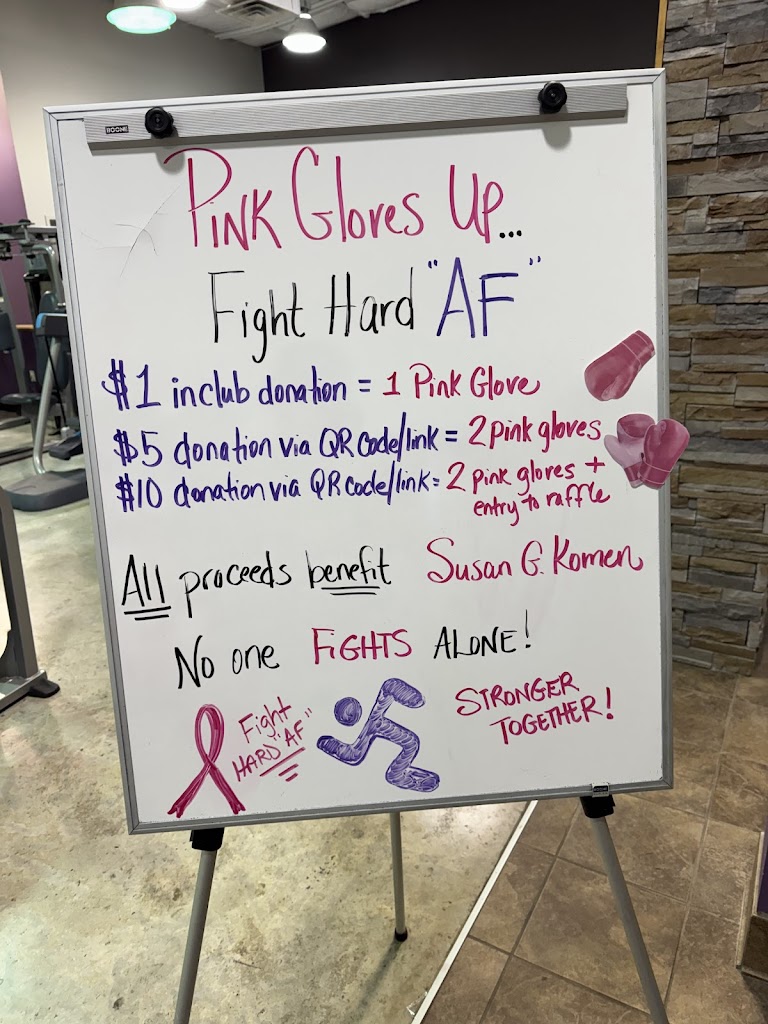 BOONE
PINK Gloves UP...
Fight Hard "AF"
$1 inclub donation = 1 Pink Glove
$5 donation via QR code/link = 2 pink gloves
$10 donation via QR code/link = 2 pink gloves +
entry to raffle
All proceeds benefit Susan G. Komen
No one FIGHTS ALONE!
Fight
HARD "AF"
STRONGER
TOGETHER!